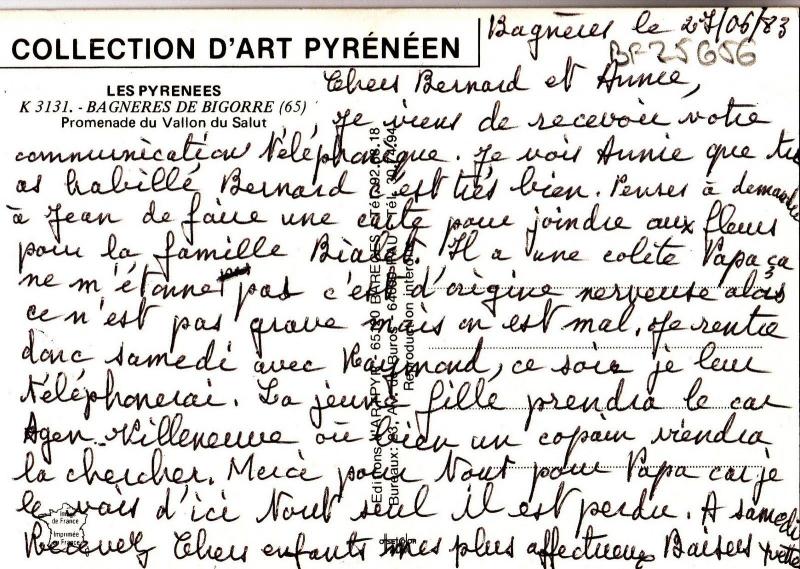 Bagnères le 27/06/83
BF25656
COLLECTION D'ART PYRÉNÉEN
LES PYRENEES
K 3131. - BAGNERES DE BIGORRE (65)
Promenade du Vallon du Salut
Chers Bernard et Annie,
Je viens de recevoir votre
communication téléphonique. Je vois Annie que tu
as habillé Bernard c'est très bien. Penses à demander
à Jean de faire une carte pour joindre aux fleurs
pour la famille Il a une colite Papa ça
ne m'étonne pas c'est d'origine nerveuse alors
ce n'est pas grave mais on est mal. Je rentre
donc samedi avec Raymond, ce soir je leur
téléphonerai. La jeune fille prendra le car
Agen Villeneuve où bien un copain viendra
la chercher. Merci pour tout pour Papa car je
le vois d'ici tout seul il est perdu. A samedi
Recevez Chers enfants mes plus affectueux Baisers
Editions 65130
Bureaux: 64000 PAU
Reproduction interdite
Image
de France
Imprimée
en France